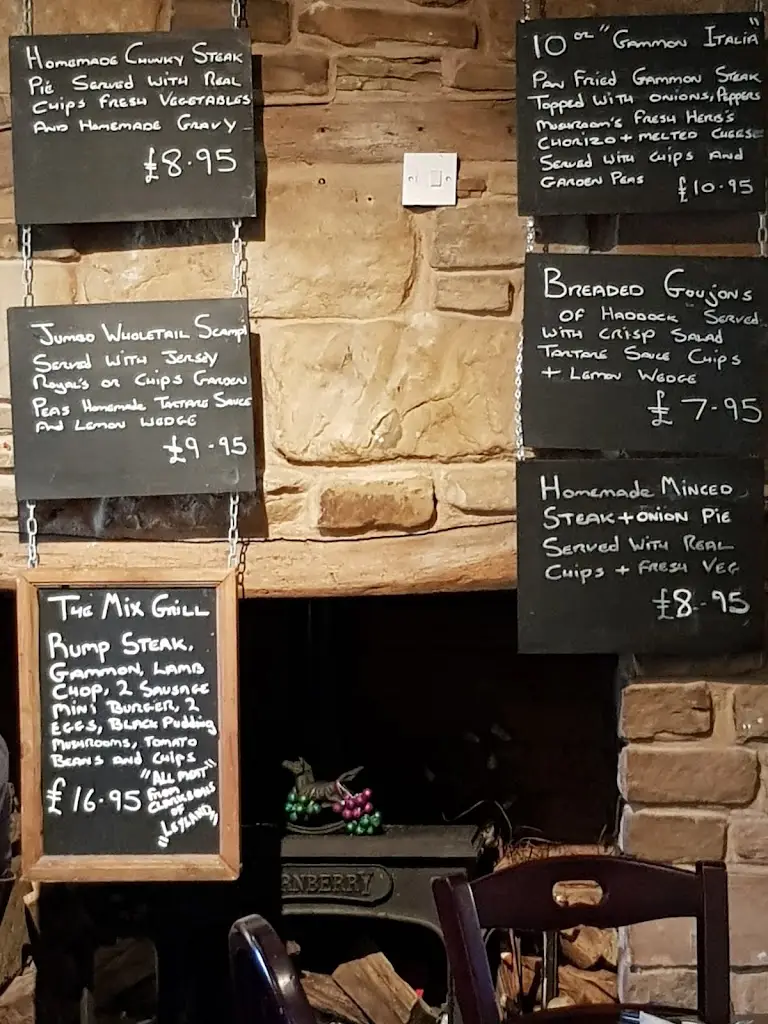 Homemade Chunky Steak
Pie Served With Real
Chips Fresh Vegetables
And Homemade Gravy
£8.95
Jumbo Wholetail Scampi
Served With Jersey
Royal's or Chips Garden
Peas Homemade Tartare Sauce
And Lemon Wedge
£9.95
The Mix Grill
Rump Steak,
Gammon, Lamb
Chop, 2 Sausage
Mini Burger, 2
Eggs, Black Pudding
Mushrooms, Tomato
Beans and Chips
£16.95
"All Meat"
From
of
"Leyland"
10 oz "Gammon Italia"
Pan Fried Gammon Steak
Topped With Onions, Peppers
Mushroom's Fresh Herb's
Chorizo + Melted Cheese
Served With Chips And
Garden Peas £10.95
Breaded Goujons
of Haddock Served
With Crisp Salad
Tartare Sauce Chips
+ Lemon Wedge
£7.95
Homemade Minced
Steak + Onion Pie
Served With Real
Chips + Fresh Veg
£8.95
RNBERRY